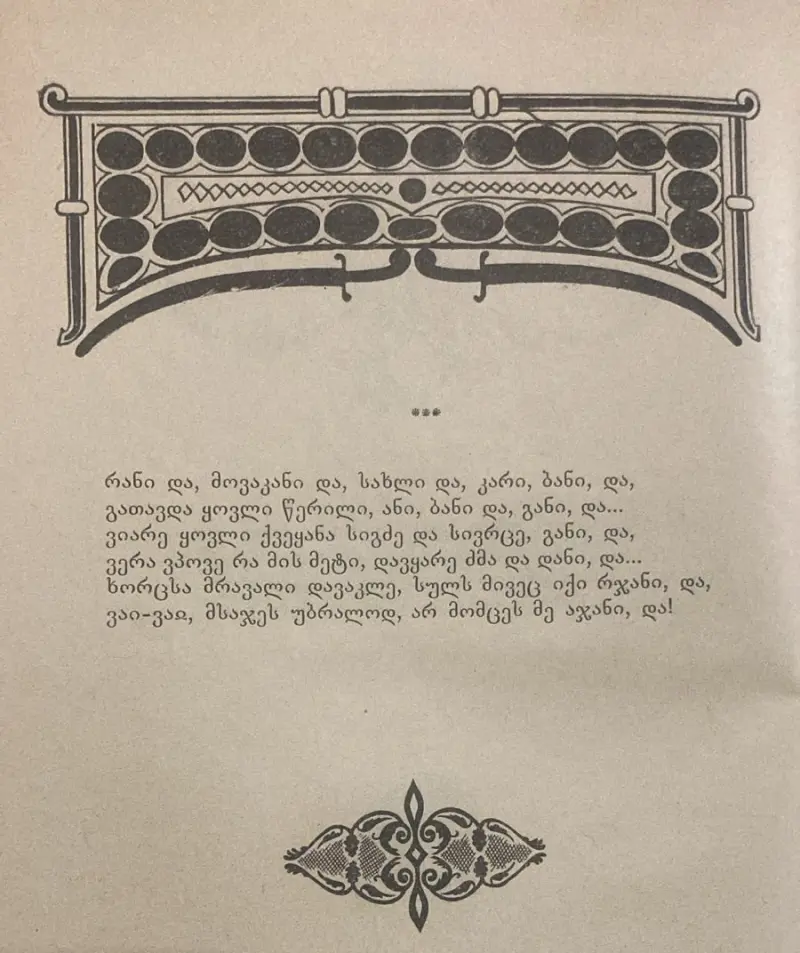 ***
რანი და, მოვაკანი და, სახლი და, კარი, ბანი, და,
გათავდა ყოვლი წერილი, ანი, ბანი და, განი, და...
ვიარე ყოვლი ქვეყანა სიგძე და სივრცე, განი, და,
ვერა ვპოვე რა მის მეტი, დავყარე ძმა და დანი, და...
ხორცსა მრავალი დავაკლე, სულს მივეც იქი რჯანი, და,
ვაი-ვაჲ, მსაჯეს უბრალოდ, არ მომცეს მე აჯანი, და!